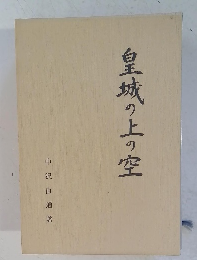 皇城の上の空